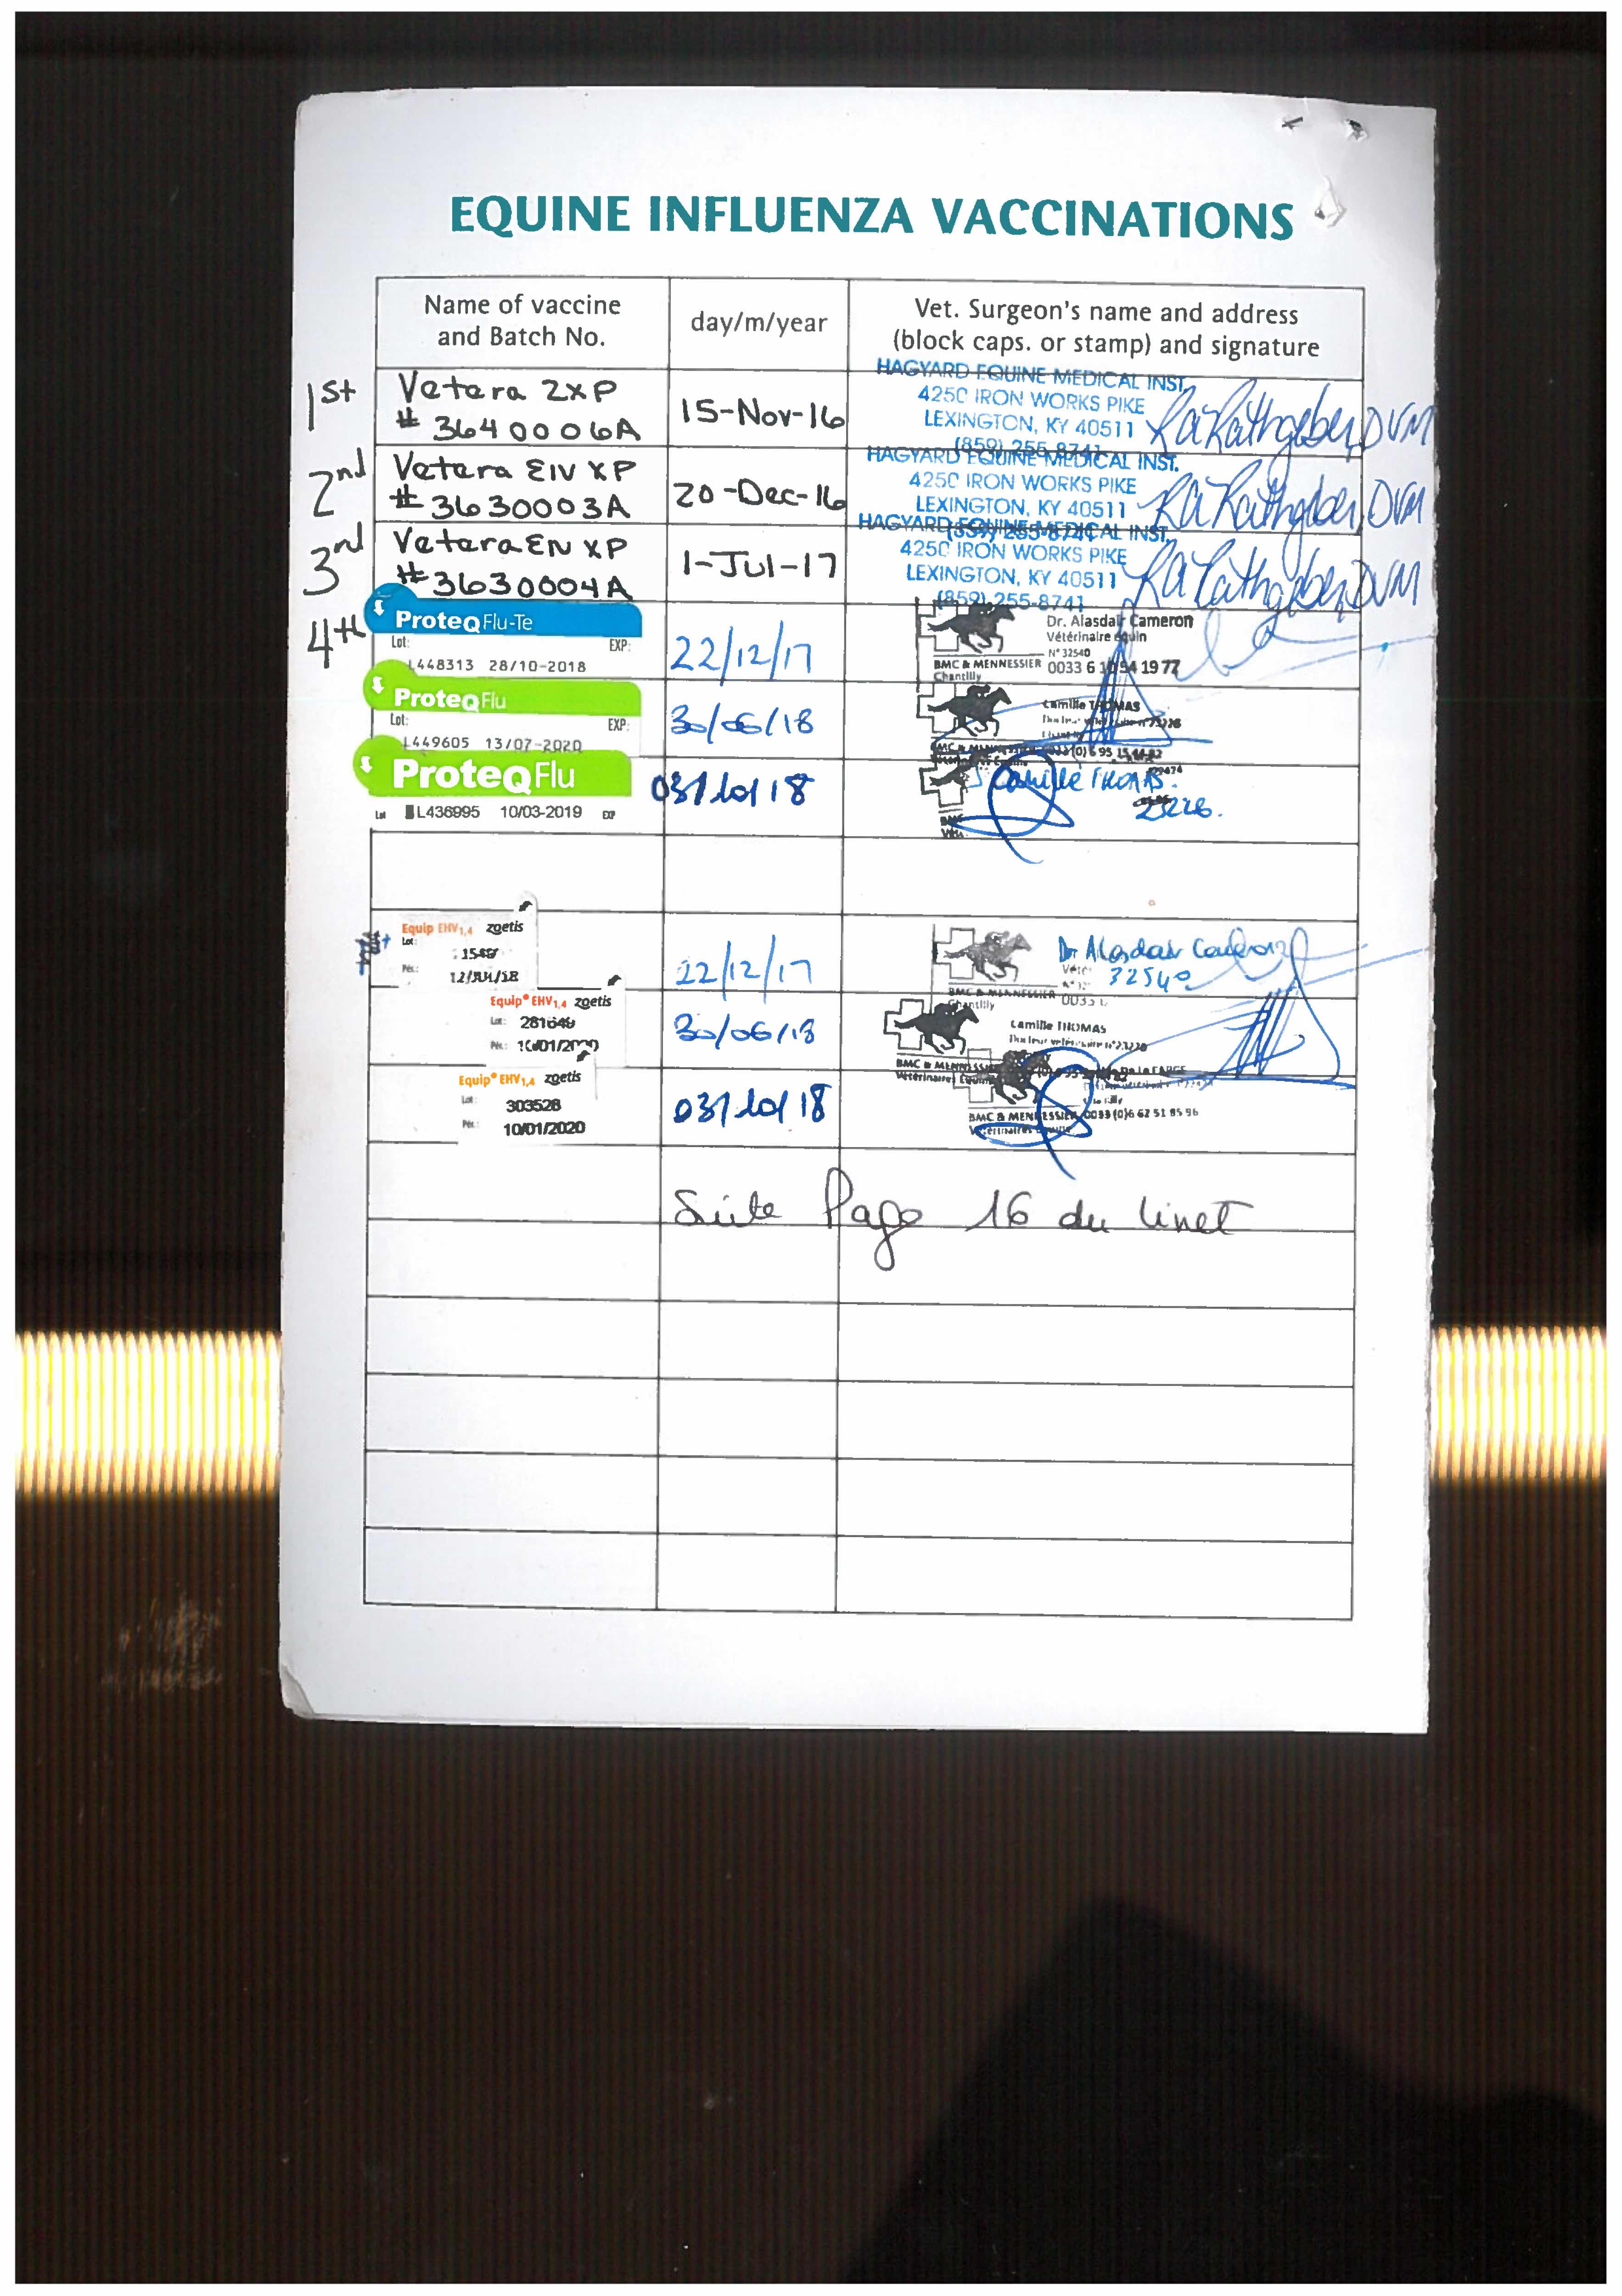 EQUINE INFLUENZA VACCINATIONS
Name of vaccine and Batch No.
day/m/year
Vet. Surgeon's name and address (block caps. or stamp) and signature
1st
Vetera 2XP
# 3640006A
15-Nov-16
HAGYARD EQUINE MEDICAL INST.
4250 IRON WORKS PIKE
LEXINGTON, KY 40511
(859) 255-8741
RA Rathgeber, DVM
2nd
Vetera EIV XP
#3630003A
20-Dec-16
HAGYARD EQUINE MEDICAL INST.
4250 IRON WORKS PIKE
LEXINGTON, KY 40511
(859) 255-8741
RA Rathgeber, DVM
3rd
Vetera EIV XP
#3630004A
1-Jul-17
HAGYARD EQUINE MEDICAL INST.
4250 IRON WORKS PIKE
LEXINGTON, KY 40511
(859) 255-8741
RA Rathgeber, DVM
4th
ProteqFlu-Te
Lot: EXP:
L448313 28/10-2018
22/12/17
Dr. Alasdair Cameron
Vétérinaire équin
N° 32540
BMC & MENNESSIER 0033 6 10 54 19 77
Chantilly
ProteqFlu
Lot: EXP:
L449605 13/07-2020
30/06/18
Camille THOMAS
BMC & MENNESSIER
ProteqFlu
Lot L436995 10/03-2019 EXP
18
Camille THOMAS.
BMC
Equip EHV1,4 zoetis
Lot:
Pér.:
22/12/17
Dr Alasdair Cameron
32540
BMC & MENNESSIER
Chantilly
Equip® EHV1,4 zoetis
Lot: 281649
Pér.:
30/06/18
Camille THOMAS
Docteur vétérinaire
BMC & MENNESSIER
Equip® EHV1,4 zoetis
Lot: 303528
Pér.: 10/01/2020
18
De La FARGE
BMC & MENNESSIER 0033 (0)6 62 51 85 96
Vétérinaires
Suite Page 16 du livret